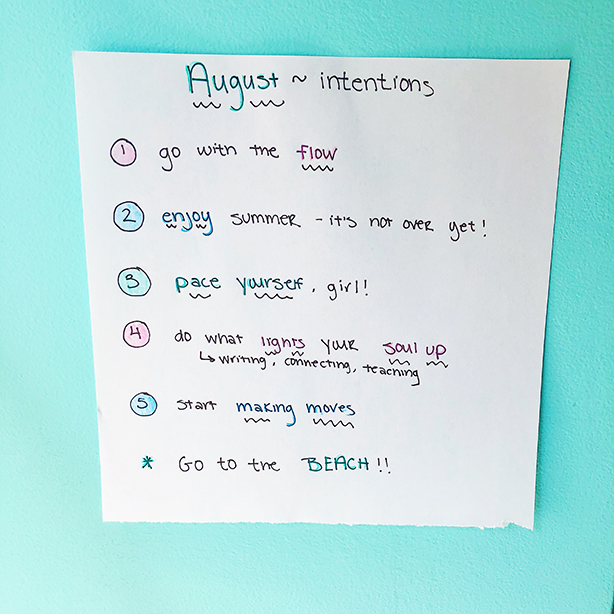 August ~ intentions
1 go with the flow
2 enjoy summer - it's not over yet!
3 pace yourself, girl!
4 do what lights your soul up
↳ writing, connecting, teaching
5 start making moves
* Go to the BEACH!!